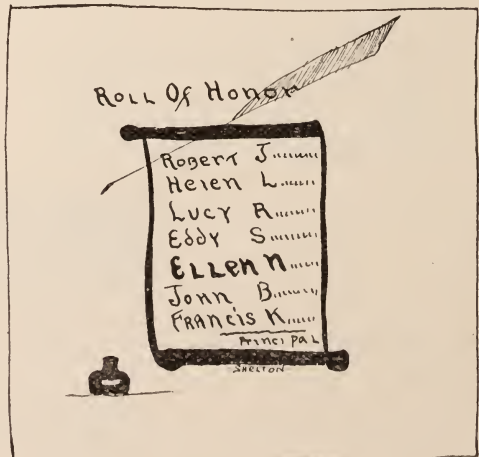 Roll Of Honor
Robert J........
Helen L.......
Lucy R........
Eddy S........
Ellen N......
John B........
Francis K......
Principal
Shelton